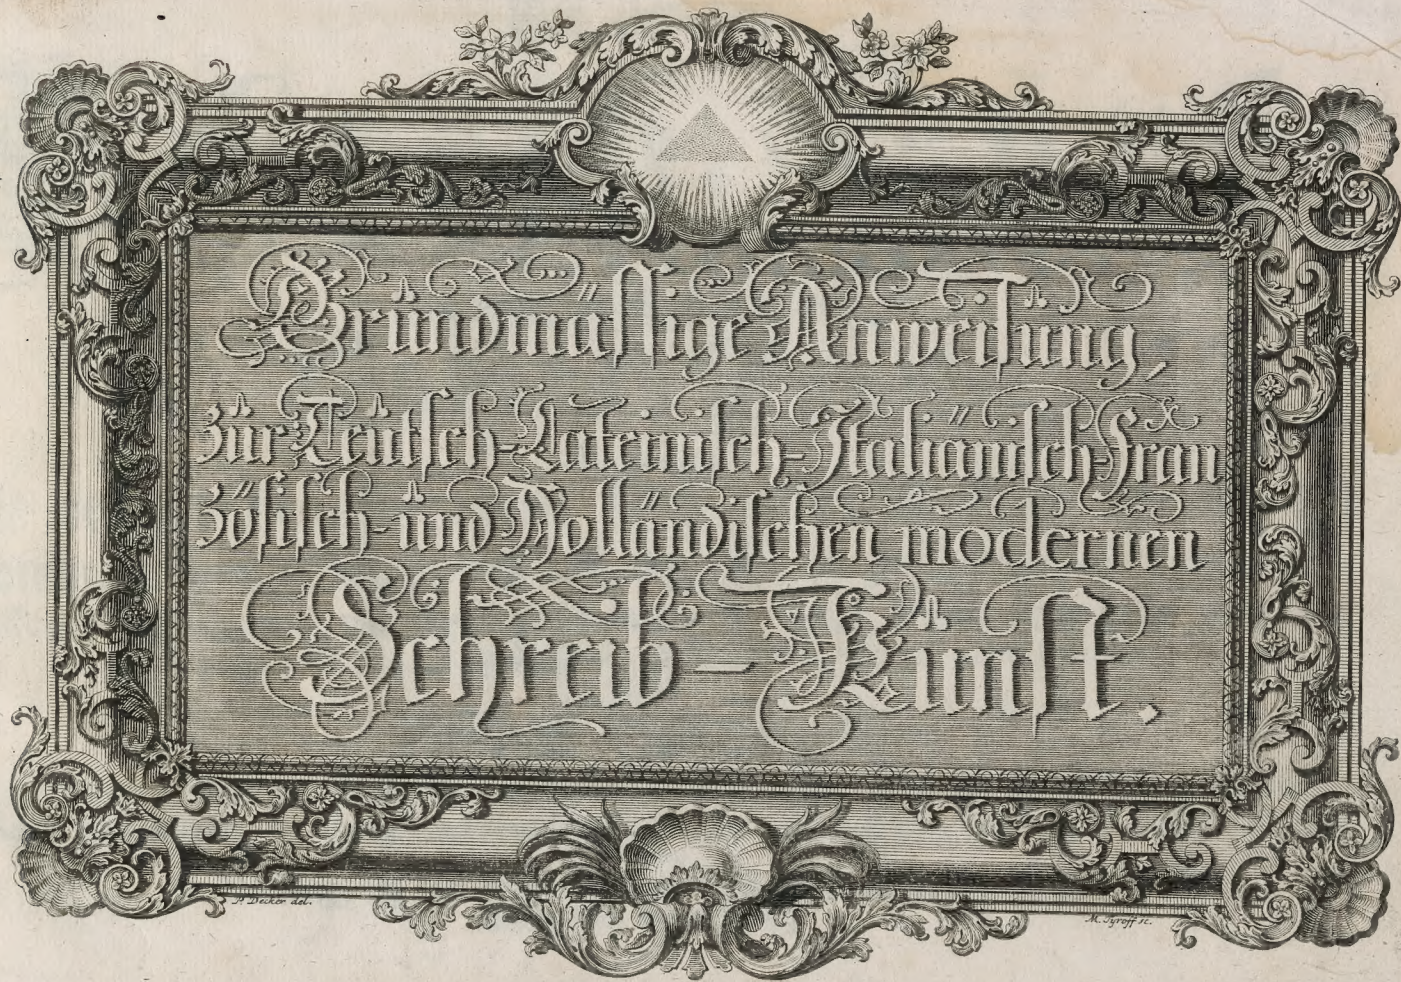 Gründmässige Anweisung,
zür Teütsch-Lateinisch-Italiänisch-Fran
zösisch-ünd Holländischen modernen
Schreib-Künst.
P. Decker del.
M. Tyroff sc.